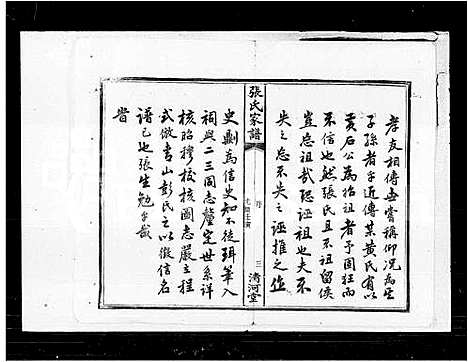 孝友相傳世嘗稱仰况為其
子孫者乎近傳某黄氏有以
黄石公為始祖者予固經而
不信也然張氏且不祖留侯
豈忘祖哉恐誣祖也夫不
失之忘不失之誣推之作
張氏家譜
序
三
清河堂
史劘為信史知不徒珥筆入
祠與二三同志釐定世系詳
核昭穆校核圖志嚴立程
式倣眉山彭氏之以徵信名
譜已也張生勉乎哉